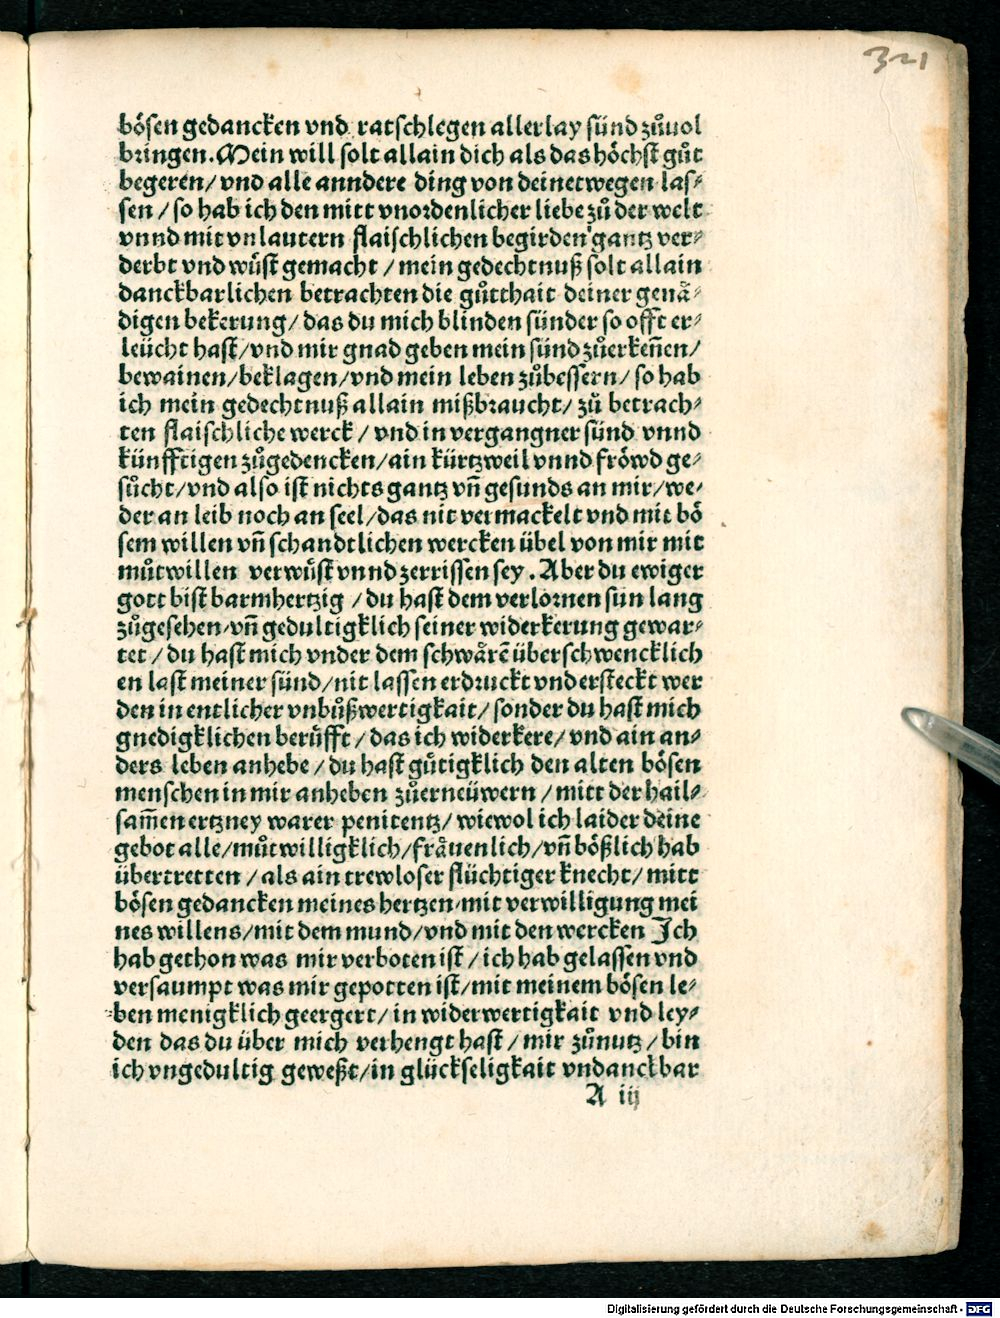 321
bösen gedancken vnd ratschlegen allerlay sünd zůuol
bringen. Mein will solt allain dich als das höchst gůt
begeren/ vnd alle anndere ding von deinetwegen las⸗
sen / so hab ich den mitt vnordenlicher liebe zů der welt
vnnd mit vnlautern flaischlichen begirden gantz ver⸗
derbt vnd wůst gemacht / mein gedechtnuß solt allain
danckbarlichen betrachten die gůtthait deiner genå⸗
digen bekerung/ das du mich blinden sünder so offt er⸗
leücht hast/vnd mir gnad geben mein sünd zůerkeñen/
bewainen/beklagen/vnd mein leben zůbessern/ so hab
ich mein gedechtnuß allain mißbraucht/ zů betrach⸗
ten flaischliche werck / vnd in vergangner sünd vnnd
künfftigen zůgedencken/ain kürtzweil vnnd fröwd ge⸗
sůcht/vnd also ist nichts gantz vñ gesunds an mir/we⸗
der an leib noch an seel/das nit vermackelt vnd mit bö
sem willen vñ schandtlichen wercken übel von mir mit
můtwillen verwůst vnnd zerrissen sey. Aber du ewiger
gott bist barmhertzig / du hast dem verlornen sun lang
zůgesehen/vñ gedultigklich seiner widerkerung gewar⸗
tet / du hast mich vnder dem schwårē überschwencklich
en last meiner sünd/nit lassen erdruckt vnd ersteckt wer
den in entlicher vnbůßwertigkait/ sonder du hast mich
gnedigklichen berůfft/ das ich widerkere/ vnd ain an⸗
ders leben anhebe/ du hast gůtigklich den alten bösen
menschen in mir anheben zůerneüwern / mitt der hail⸗
sam̃en ertzney warer penitentz/ wiewol ich laider deine
gebot alle/můtwilligklich/fråuenlich/vñ bößlich hab
übertretten / als ain trewloser flüchtiger knecht/ mitt
bösen gedancken meines hertzen/mit verwilligung mei
nes willens/mit dem mund/vnd mit den wercken Ich
hab gethon was mir verboten ist / ich hab gelassen vnd
versaumpt was mir gepotten ist/mit meinem bösen le⸗
ben menigklich geergert/ in widerwertigkait vnd ley⸗
den das du über mich verhengt hast / mir zůnutz / bin
ich vngedultig geweßt/in glückseligkait vndanckbar
A iij
Digitalisierung gefördert durch die Deutsche Forschungsgemeinschaft - DFG